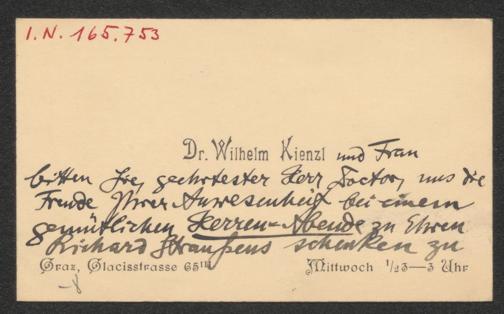 I.N. 165.753
Dr. Wilhelm Kienzl und Frau
bitten Sie, geehrtester Herr Doctor, uns die
Freude Ihrer Anwesenheit bei einem
gemütlichen Herren-Abende zu Ehren
Richard Straußens schenken zu
Graz, Glacisstrasse 65III Mittwoch 1/23–3 Uhr